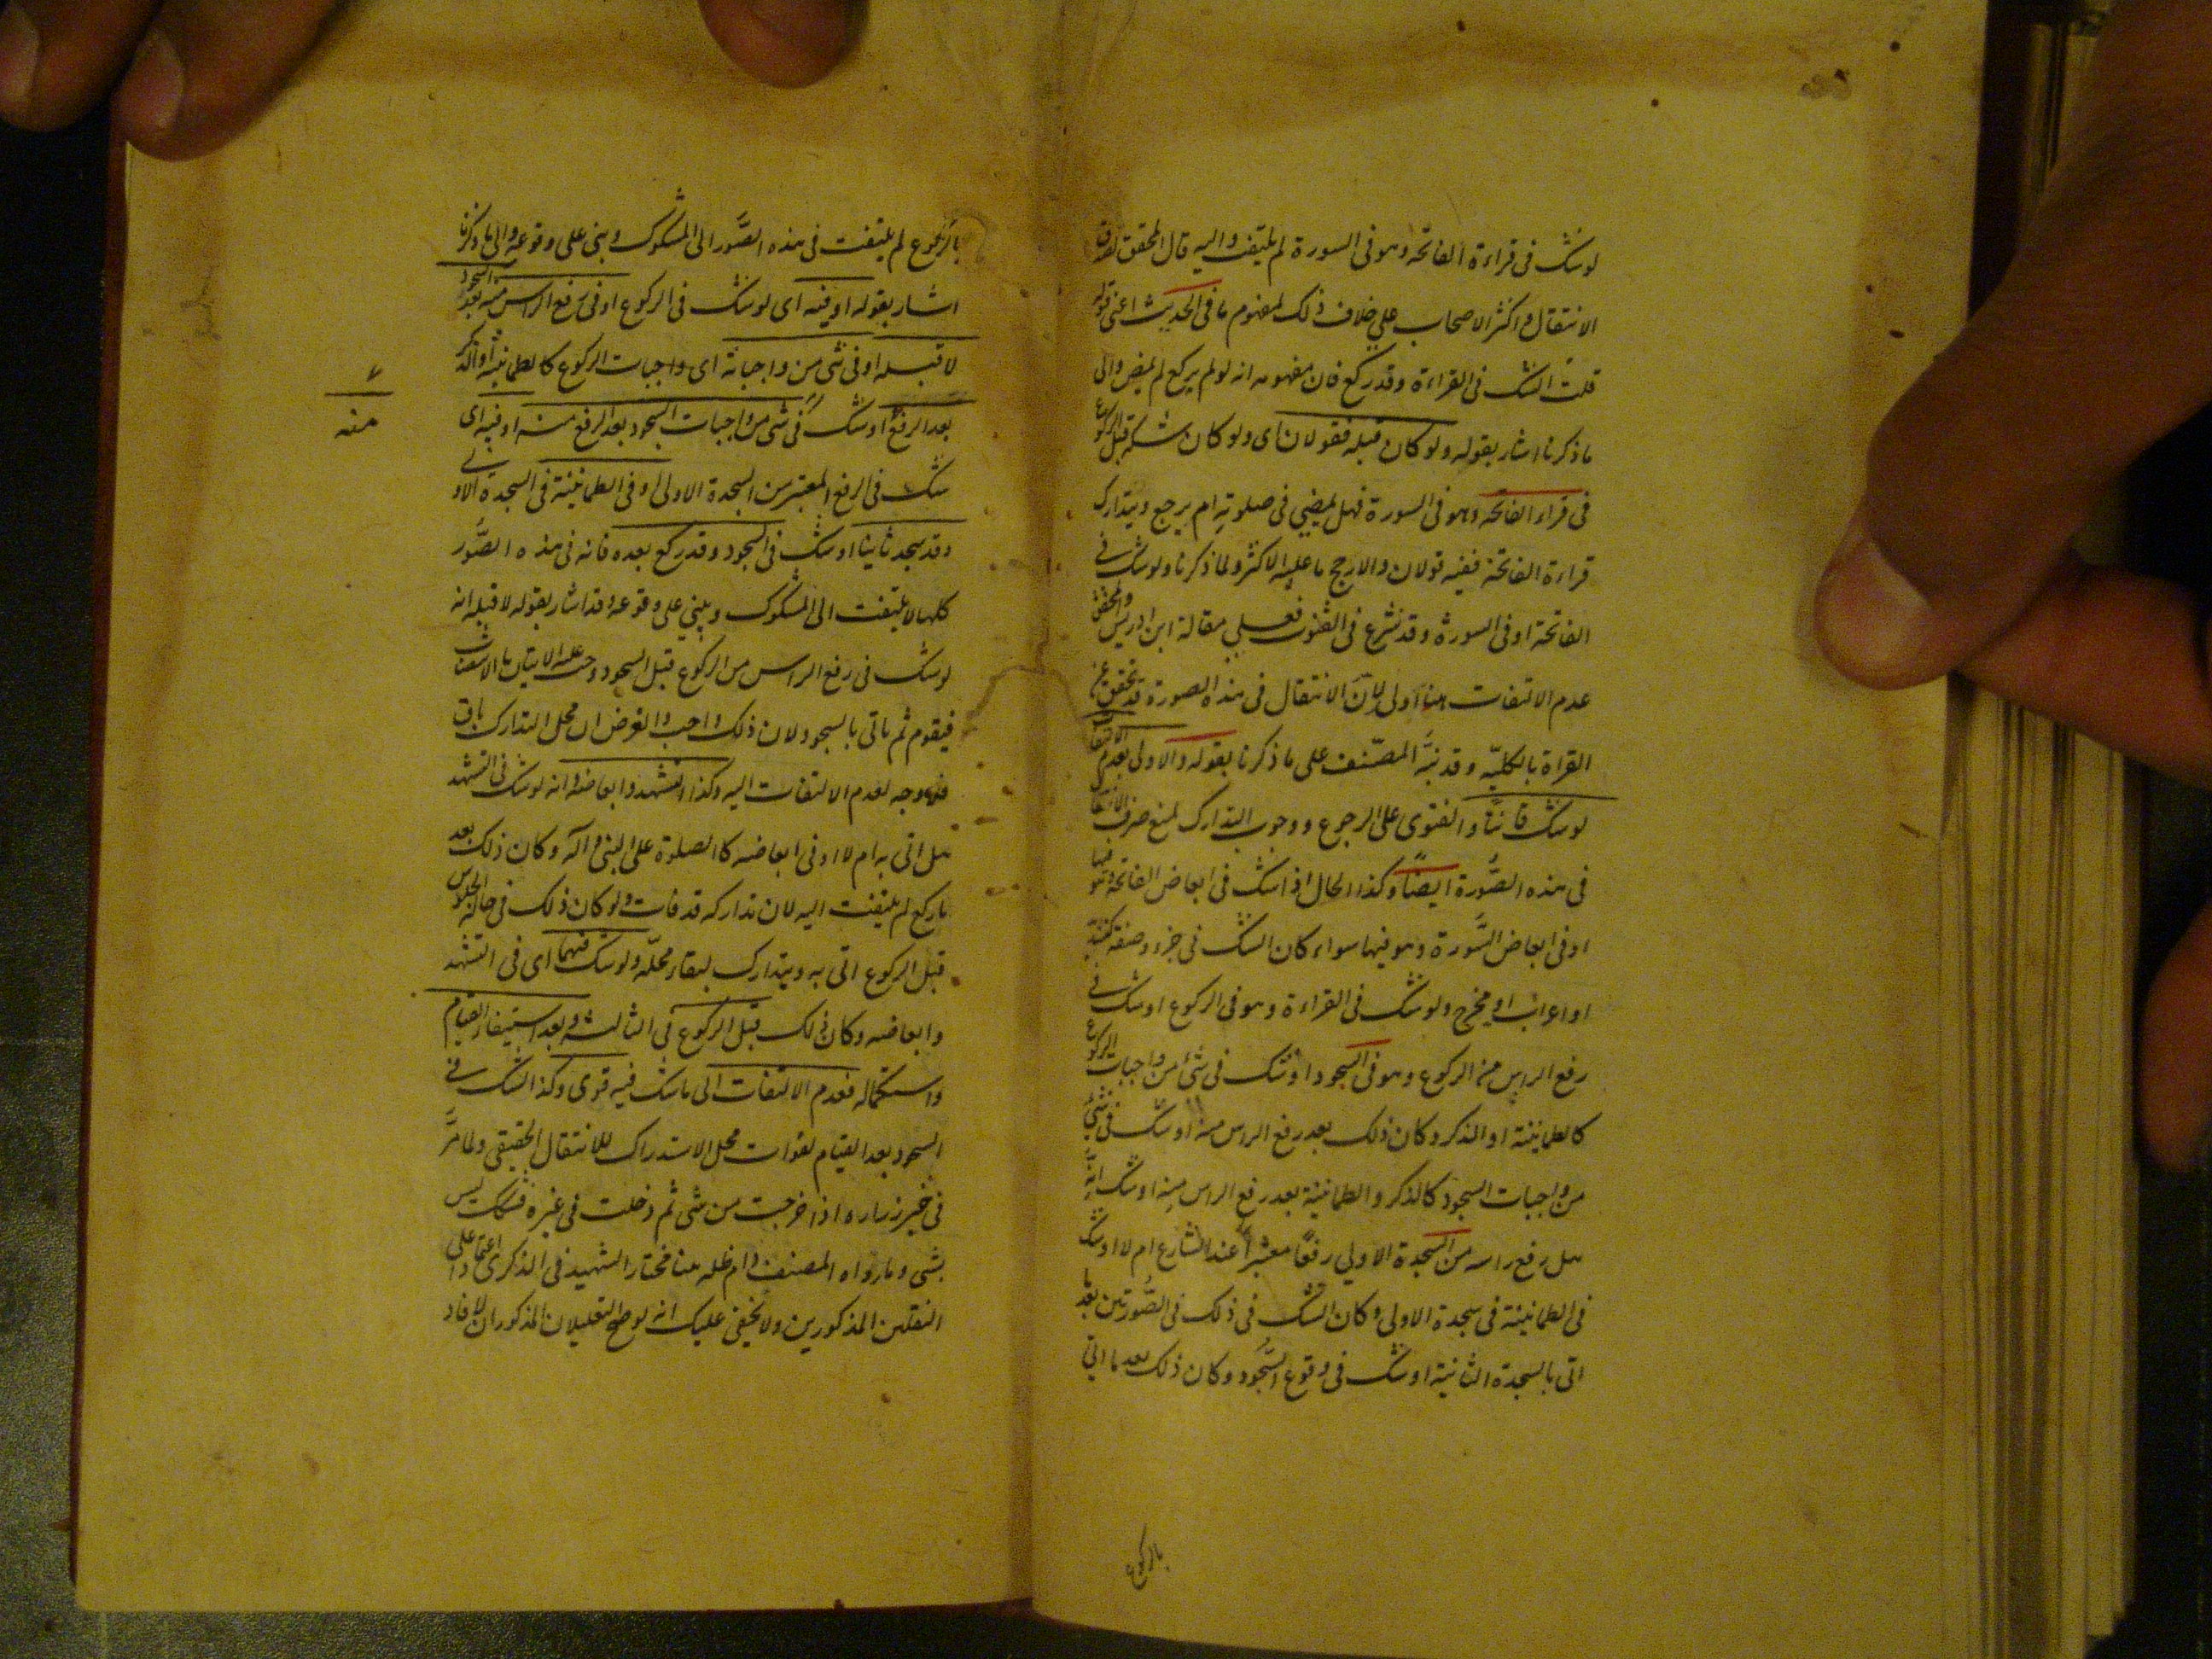 لو شك فى قراءة الفاتحة وهو فى السورة لم يلتفت اليه قال المحقق لصدق
الانتقال واكثر الاصحاب على خلاف ذلك لمفهوم ما فى الحديث اعنى قوله
قلت الشك فى القراءة وقد ركع فان مفهومه انه لو لم يركع لم يمض والى
ما ذكرنا اشار بقوله ولو كان قبله فقولان اى ولو كان شكه قبل الركوع
فى قراءة الفاتحة وهو فى السورة فهل يمضى فى صلوته ام يرجع ويتدارك
قراءة الفاتحة ففيه قولان والارجح ما عليه الاكثر ولما ذكرنا ولو شك فى
الفاتحة او فى السورة وقد شرع فى القنوت فعلى مقالة ابن ادريس والمحقق
عدم الالتفات هنا اولى لان الانتقال فى هذه الصورة قد تحقق عن
القراة بالكلية وقد نبه المصنف على ما ذكرنا بقوله والاولى بعدم الالتفات
لو شك قانتا والفتوى على الرجوع ووجوب التدارك لمنع صرف الانتقال
فى هذه الصورة ايضا وكذا الحال اذا شك فى ابعاض الفاتحة وهو فيها
او فى ابعاض السورة وهو فيها سواء كان الشك فى جزء وصفة كتشديد
او اعراب او مخرج ولو شك فى القراءة وهو فى الركوع او شك فى
رفع الراس من الركوع وهو فى السجود او شك فى شئ من واجبات الركوع
كالطمانينة او الذكر وكان ذلك بعد رفع الراس منه او شك فى شئ
من واجبات السجود كالذكر والطمانينة بعد رفع الراس منه او شك انه
هل رفع راسه من السجدة الاولى رفعا معتبرا عند الشارع ام لا او شك
فى الطمانينة فى سجدة الاولى وكان الشك فى ذلك فى الصورتين بعد ما
اتى بالسجدة الثانية او شك فى وقوع السجود وكان ذلك بعد ما اتى
بالركوع
بالركوع لم يلتفت فى هذه الصور الى المشكوك وبنى على وقوعه والى ما ذكرنا
اشار بقوله او فيه اى لو شك فى الركوع او فى رفع الراس منه بعد السجود
لا قبله او فى شى من واجباته اى واجبات الركوع كالطمانينة والذكر
بعد الرفع او شك فى شى من واجبات السجود بعد الرفع منه او فيه اى
شك فى الرفع المعتبر من السجدة الاولى او فى الطمانينة فى السجدة الاولى
وقد سجد ثانيا او شك فى السجود وقد ركع بعده فانه فى هذه الصور
كلها لا يلتفت الى المشكوك ويبنى على وقوعه وقد اشار بقوله لا قبله انه
لو شك فى رفع الراس من الركوع قبل السجود وجب عليه الاتيان بالانتصاب
فيقوم ثم ياتى بالسجود لان ذلك واجب والغرض ان محل التدارك باق
فلا وجه لعدم الالتفات اليه وكذا التشهد وابعاضه وانه لو شك فى التشهد
هل اتى به ام لا او فى ابعاضه كالصلوة على النبى وآله وكان ذلك بعد
ما ركع لم يلتفت اليه لان تداركه قد فات ولو كان ذلك فى حالة الجلوس
قبل الركوع اتى به ويتدارك لبقاء محله ولو شك فيهما اى فى التشهد
وابعاضه وكان ذلك قبل الركوع فى الثالثة وبعد استيفاء القيام
واستكماله فعدم الالتفات الى ما شك فيه قوى وكذا الشك فى
السجود بعد القيام لفوات محل الاستدراك للانتقال الحقيقى ولما مر
فى خبر زرارة اذا خرجت من شى ثم دخلت فى غيره فشكك ليس
بشى وما رواه المصنف دام ظله هنا مختار الشهيد فى الذكرى اعتمادا على
النقلين المذكورين ولا يخفى عليك انه لو صح التعليلان المذكوران لافاد
منه